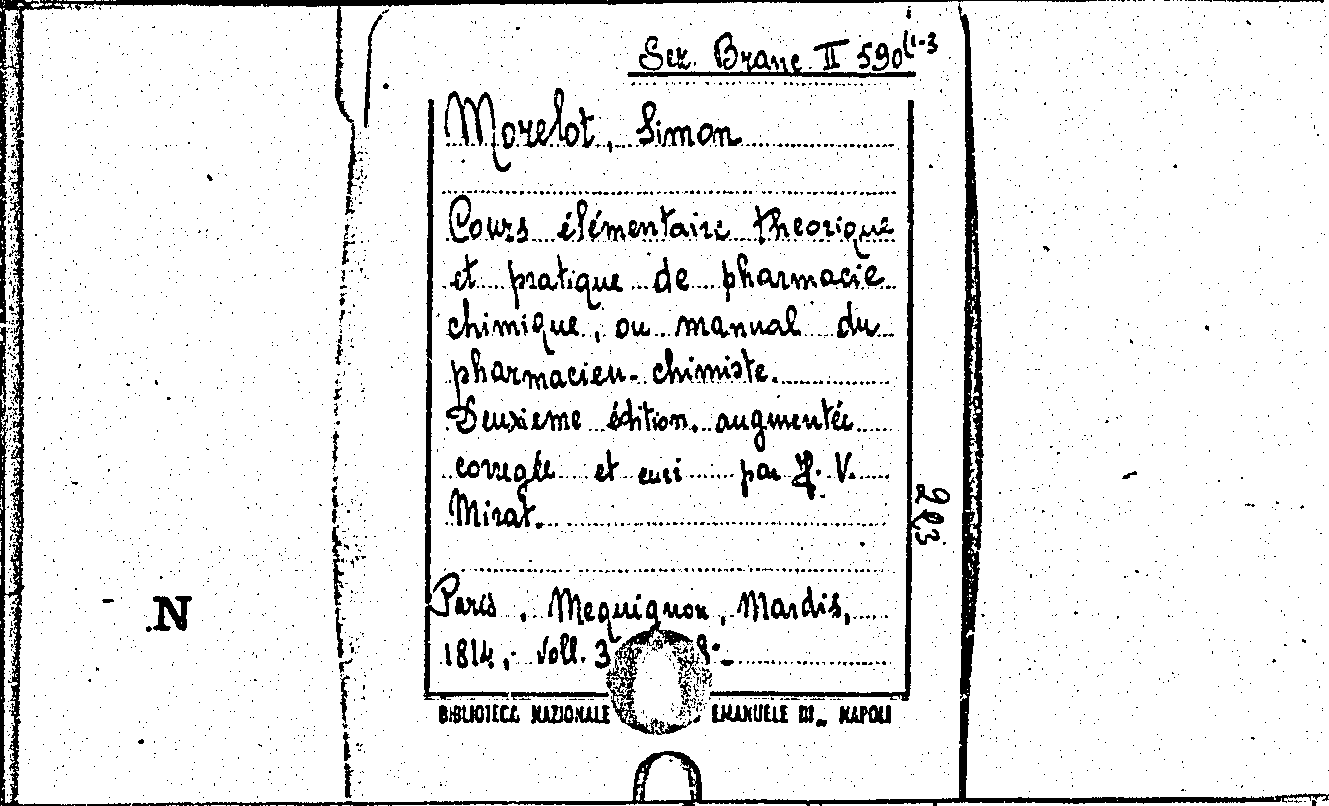 Sez. Branc. II 590(1-3
Morelot, Simon
Cours élémentaire theorique
et pratique de pharmacie
chimique, ou manual du
pharmacien-chimiste.
Deuxieme édition, augmentée
corregée et par V.
Mirat.
Paris, Mequignon, Mardis,
1814,- Voll. 3 8°-
BIBLIOTECA NAZIONALE EMANUELE III„ NAPOLI
N